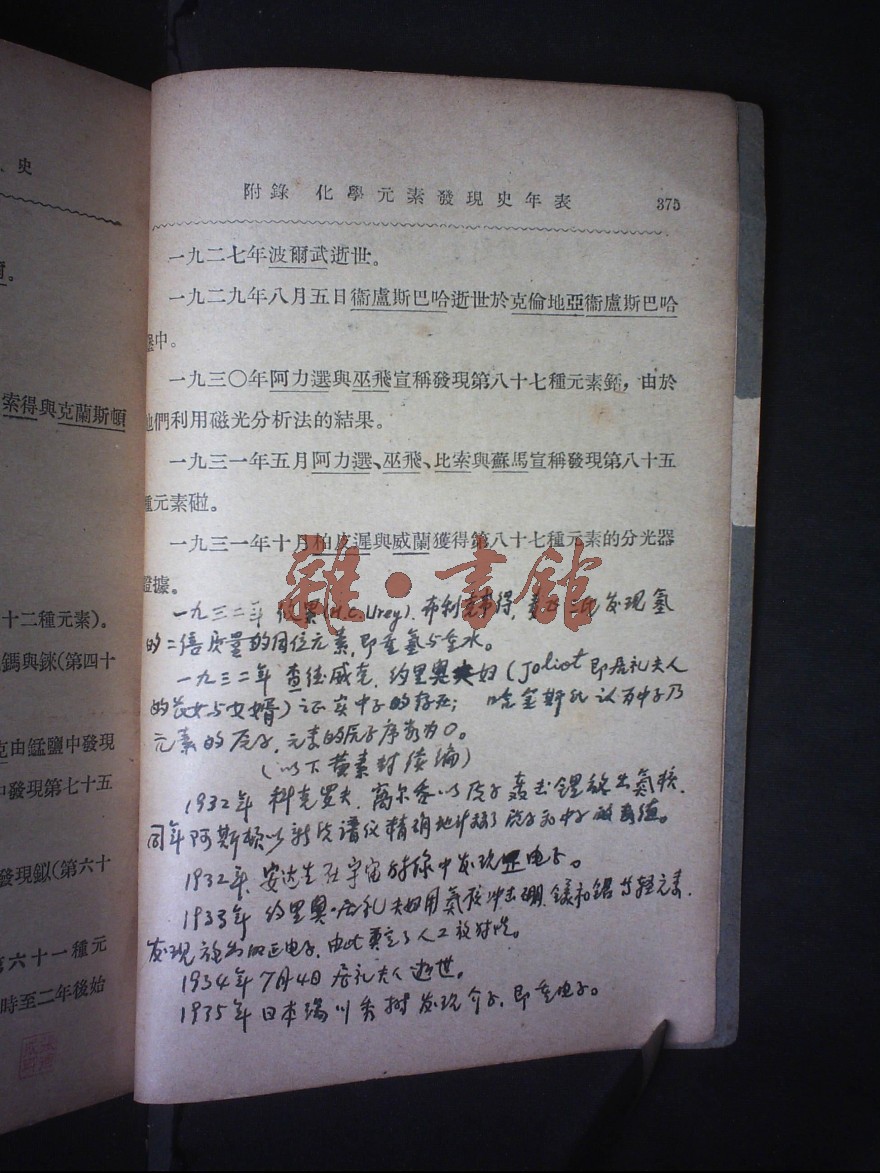 史
索得與克蘭斯頓
十二種元素)。
鎷與錸(第四十
克由錳鹽中發現
中發現第七十五
發現鉯(第六十
第六十一種元
時至二年後始
附錄 化學元素發現史年表 375
一九二七年波爾武逝世。
一九二九年八月五日衞盧斯巴哈逝世於克倫地亞衞盧斯巴哈
堡中。
一九三〇年阿力選與巫飛宣稱發現第八十七種元素,由於
他們利用磁光分析法的結果。
一九三一年五月阿力選、巫飛、比索與蘇馬宣稱發現第八十五
種元素。
一九三一年十月柏皮遲與威蘭獲得第八十七種元素的分光器
證據。
雜·書館
一九三二年 (H.C.Urey). 布利克, 发现氢
的二倍质量的同位元素,即重氢与重水。
一九三二年 查德威克. 约里奥夫妇(Joliot 即居礼夫人
的长女与女婿)证实中子的存在; 哈金斯 认为中子乃
元素的原子,元素的原子序数为0。
(以下黄素封续编)
1932年 科克罗夫. 以质子轰击锂 出氦核.
同年阿斯顿以新质谱仪精确地 了质子和中子 质量。
1932年 安达生在宇宙射线中发现正电子。
1933年 约里奥·居礼夫妇用氦核冲击硼、镁和铝等轻元素.
发现 正电子,由此奠定了人工放射性。
1934年7月4日居礼夫人逝世。
1935年日本汤川秀树发现介子,即重电子。